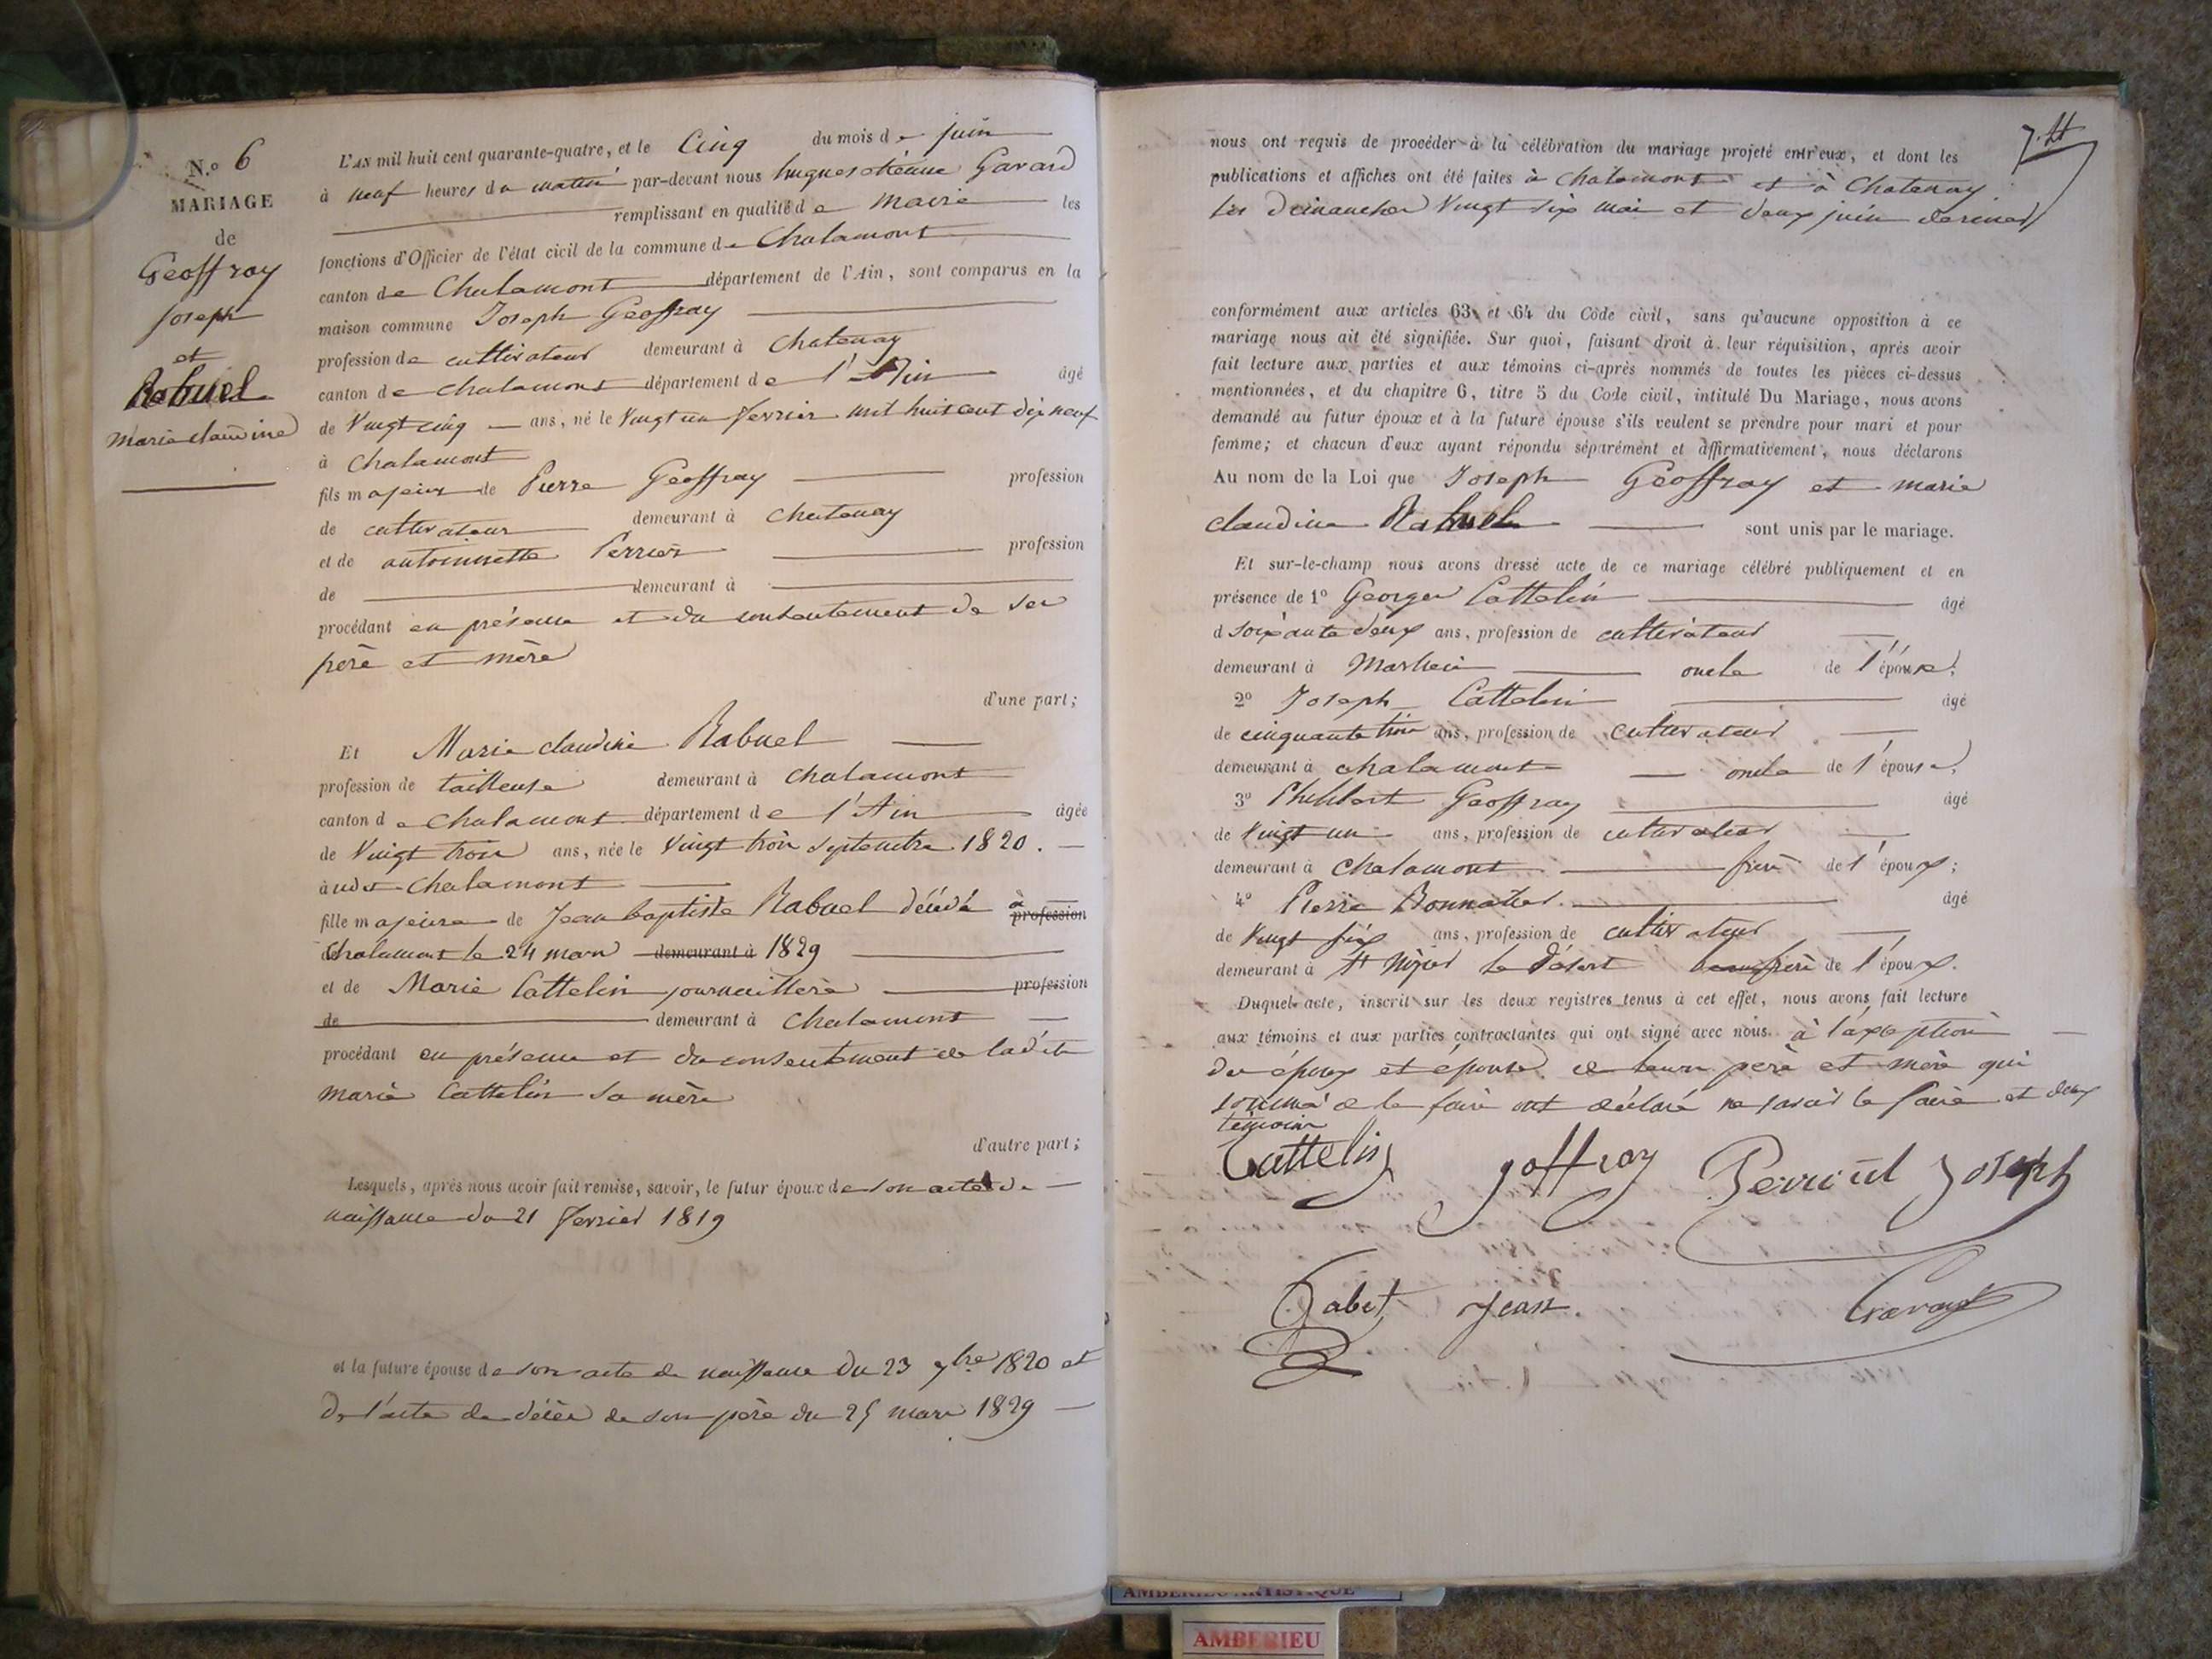 N.º 6
MARIAGE
de
Geoffray
Joseph
et
Rabuel
marie claudine
L'AN mil huit cent quarante-quatre, et le Cinq du mois de juin
à neuf heures du matin par-devant nous hugues étienne Gavard
remplissant en qualité de maire les
fonctions d'Officier de l'état civil de la commune de Chalamont
canton de Chalamont département de l'Ain, sont comparus en la
maison commune Joseph Geoffray
profession de cultivateur demeurant à Chatenay
canton de chalamont département de l'Ain âgé
de Vingt cinq ans, né le Vingt un février mil huit cent dix neuf
à Chalamont
fils majeur de Pierre Geoffray profession
de cultivateur demeurant à chatenay
et de antoinette Perrier profession
de demeurant à
procédant en présence et du consentement de ses
père et mère
d'une part;
Et Marie claudine Rabuel
profession de tailleuse demeurant à chalamont
canton de chalamont département de l'Ain âgée
de Vingt trois ans, née le Vingt trois septembre 1820.
à udit Chalamont
fille majeure de Jean baptiste Rabuel décédé à profession
Chalamont le 24 mars demeurant à 1829
et de Marie Cattelin journaillère profession
de demeurant à chalamont
procédant en présence et du consentement de ladite
marie Cattelin sa mère
d'autre part;
Lesquels, après nous avoir fait remise, savoir, le futur époux de son acte de
naissance du 21 février 1819
et la future épouse de son acte de naissance du 23 7bre 1820 et
de l'acte de décès de son père du 25 mars 1829
nous ont requis de procéder à la célébration du mariage projeté entr'eux, et dont les
publications et affiches ont été faites à chalamont et à Chatenay
les dimanches Vingt six mai et deux juin derniers
conformément aux articles 63 et 64 du Code civil, sans qu'aucune opposition à ce
mariage nous ait été signifiée. Sur quoi, faisant droit à leur réquisition, après avoir
fait lecture aux parties et aux témoins ci-après nommés de toutes les pièces ci-dessus
mentionnées, et du chapitre 6, titre 5 du Code civil, intitulé Du Mariage, nous avons
demandé au futur époux et à la future épouse s'ils veulent se prendre pour mari et pour
femme; et chacun d'eux ayant répondu séparément et affirmativement, nous déclarons
Au nom de la Loi que Joseph Geoffray et marie
claudine Rabuel sont unis par le mariage.
Et sur-le-champ nous avons dressé acte de ce mariage célébré publiquement et en
présence de 1º Georges Cattelin âgé
d soixante deux ans, profession de cultivateur
demeurant à Marlieu oncle de l'épouse;
2º Joseph Cattelin âgé
de cinquante trois ans, profession de cultivateur
demeurant à chalamont oncle de l'épouse;
3º Philibert Geoffray âgé
de Vingt un ans, profession de cultivateur
demeurant à chalamont frère de l'époux;
4º Pierre Bonnatet âgé
de Vingt six ans, profession de cultivateur
demeurant à St Nizier le désert beaufrère de l'époux.
Duquel acte, inscrit sur les deux registres tenus à cet effet, nous avons fait lecture
aux témoins et aux parties contractantes qui ont signé avec nous. à l'axception
des époux et épouse de leurs père et mère qui
sommé de le faire ont déclaré ne savoir le faire et deux
témoins
Cattelin Joffray Perroud Joseph
Gabet Jean Gavard
AMBERIEU ARTISTIQUE
AMBERIEU